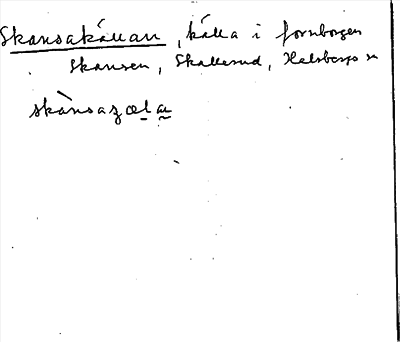 Skansakällan, källa i fornborgen
Skansen, Skållerud, Halsbergs sn
skànsazœla